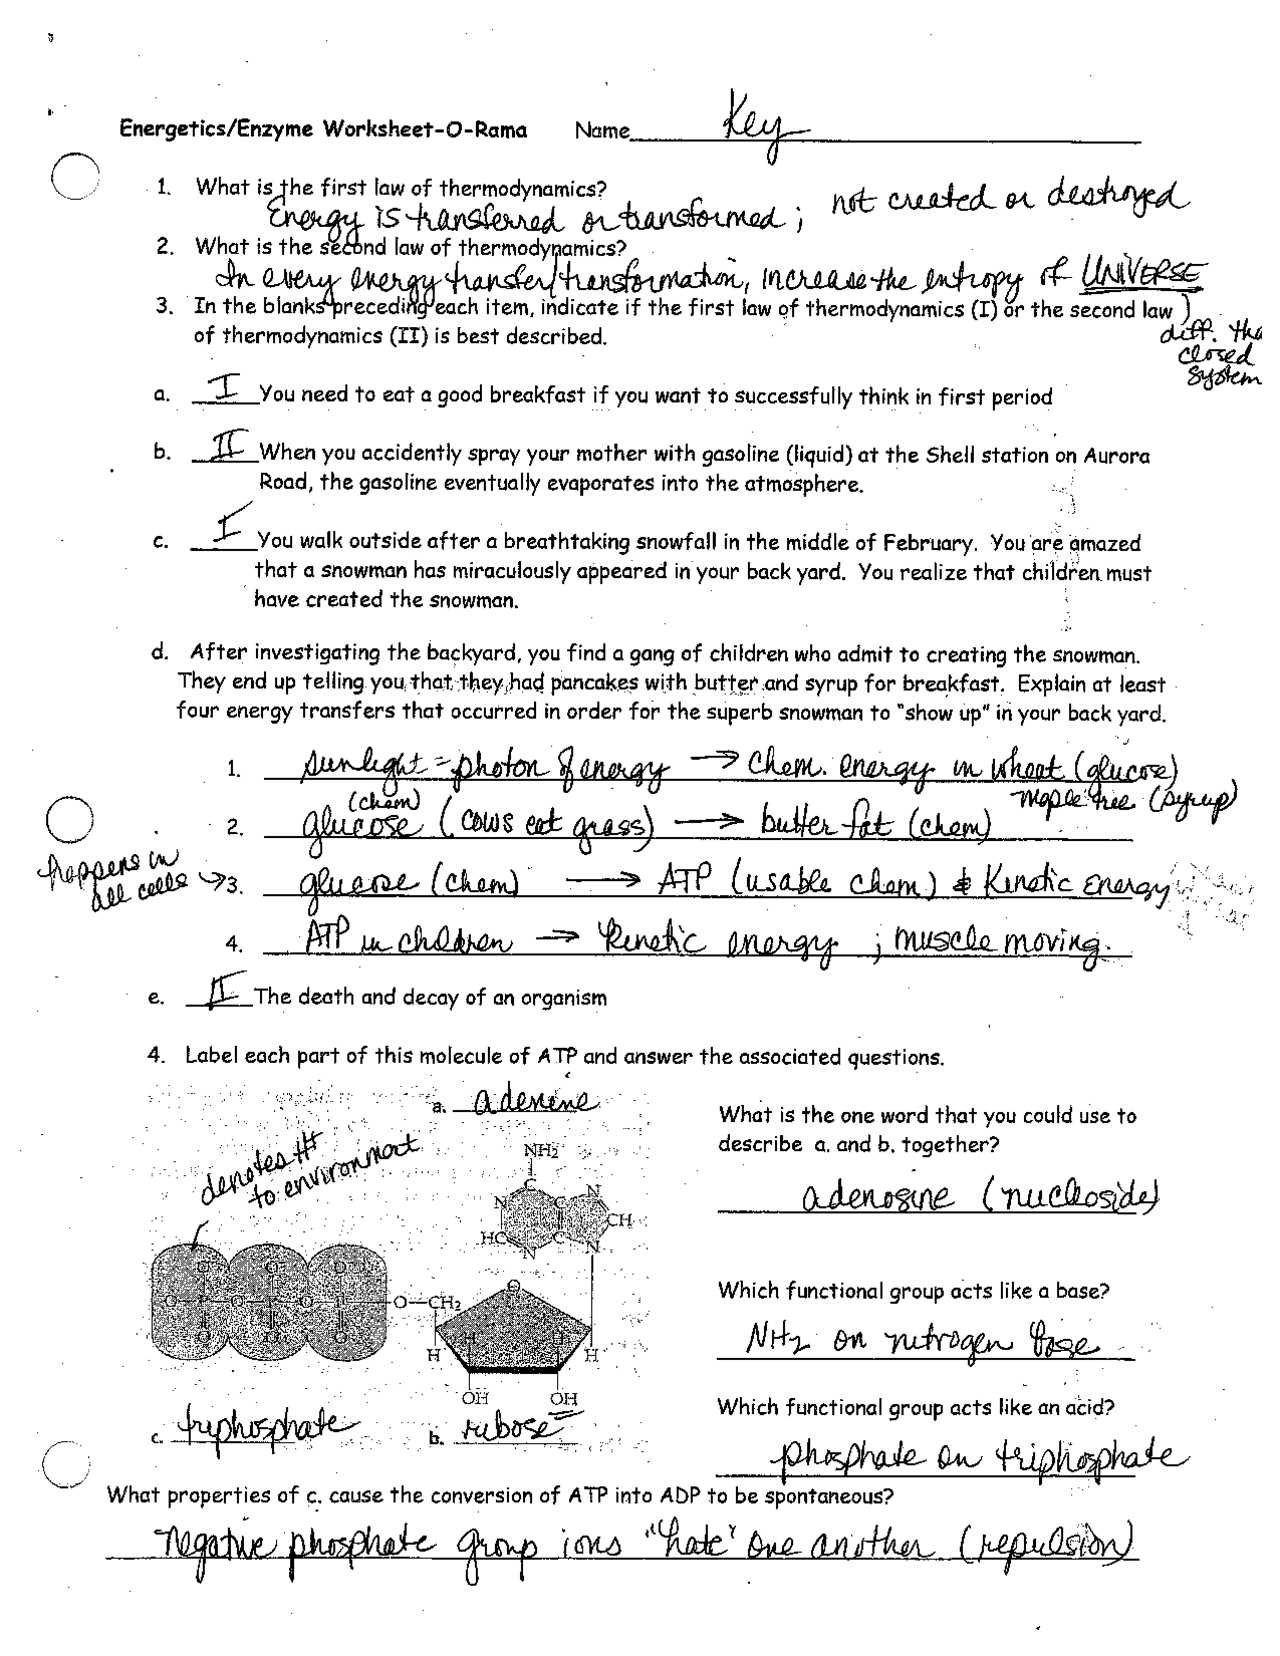 Energetics/Enzyme Worksheet-O-Rama Name Key
1. What is the first law of thermodynamics?
Energy is transferred or transformed; not created or destroyed
2. What is the second law of thermodynamics?
In every energy transfer/transformation, increase the entropy of UNIVERSE
3. In the blanks preceding each item, indicate if the first law of thermodynamics (I) or the second law
of thermodynamics (II) is best described.
diff. tha
closed
system
a. I You need to eat a good breakfast if you want to successfully think in first period
b. II When you accidently spray your mother with gasoline (liquid) at the Shell station on Aurora
Road, the gasoline eventually evaporates into the atmosphere.
c. I You walk outside after a breathtaking snowfall in the middle of February. You are amazed
that a snowman has miraculously appeared in your back yard. You realize that children must
have created the snowman.
d. After investigating the backyard, you find a gang of children who admit to creating the snowman.
They end up telling you that they had pancakes with butter and syrup for breakfast. Explain at least
four energy transfers that occurred in order for the superb snowman to "show up" in your back yard.
1. sunlight = photon of energy → chem. energy in wheat (glucose)
maple tree (syrup)
(chem)
2. glucose (cows eat grass) → butter fat (chem)
happens in
all cells → 3. glucose (chem) → ATP (usable chem) & Kinetic energy
4. ATP in children → kinetic energy ; muscle moving.
e. II The death and decay of an organism
4. Label each part of this molecule of ATP and answer the associated questions.
a. adenine
What is the one word that you could use to
describe a. and b. together?
adenosine (nucleoside)
denotes H+
to environment
NH2
C
N C N
CH
HC C
N N
O O O
O-P-O-P-O-P-O-CH2
O O O
O
H H H H
OH OH
Which functional group acts like a base?
NH2 on nitrogen base
Which functional group acts like an acid?
phosphate on triphosphate
c. triphosphate b. ribose
What properties of c. cause the conversion of ATP into ADP to be spontaneous?
negative phosphate group ions "hate" one another (repulsion)